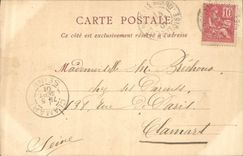 CARTE POSTALE
Ce côté est exclusivement réservé à l'adresse
10
Mademoiselle M. Bréheret
chez ses Parents
191 rue de Paris
Clamart
Seine